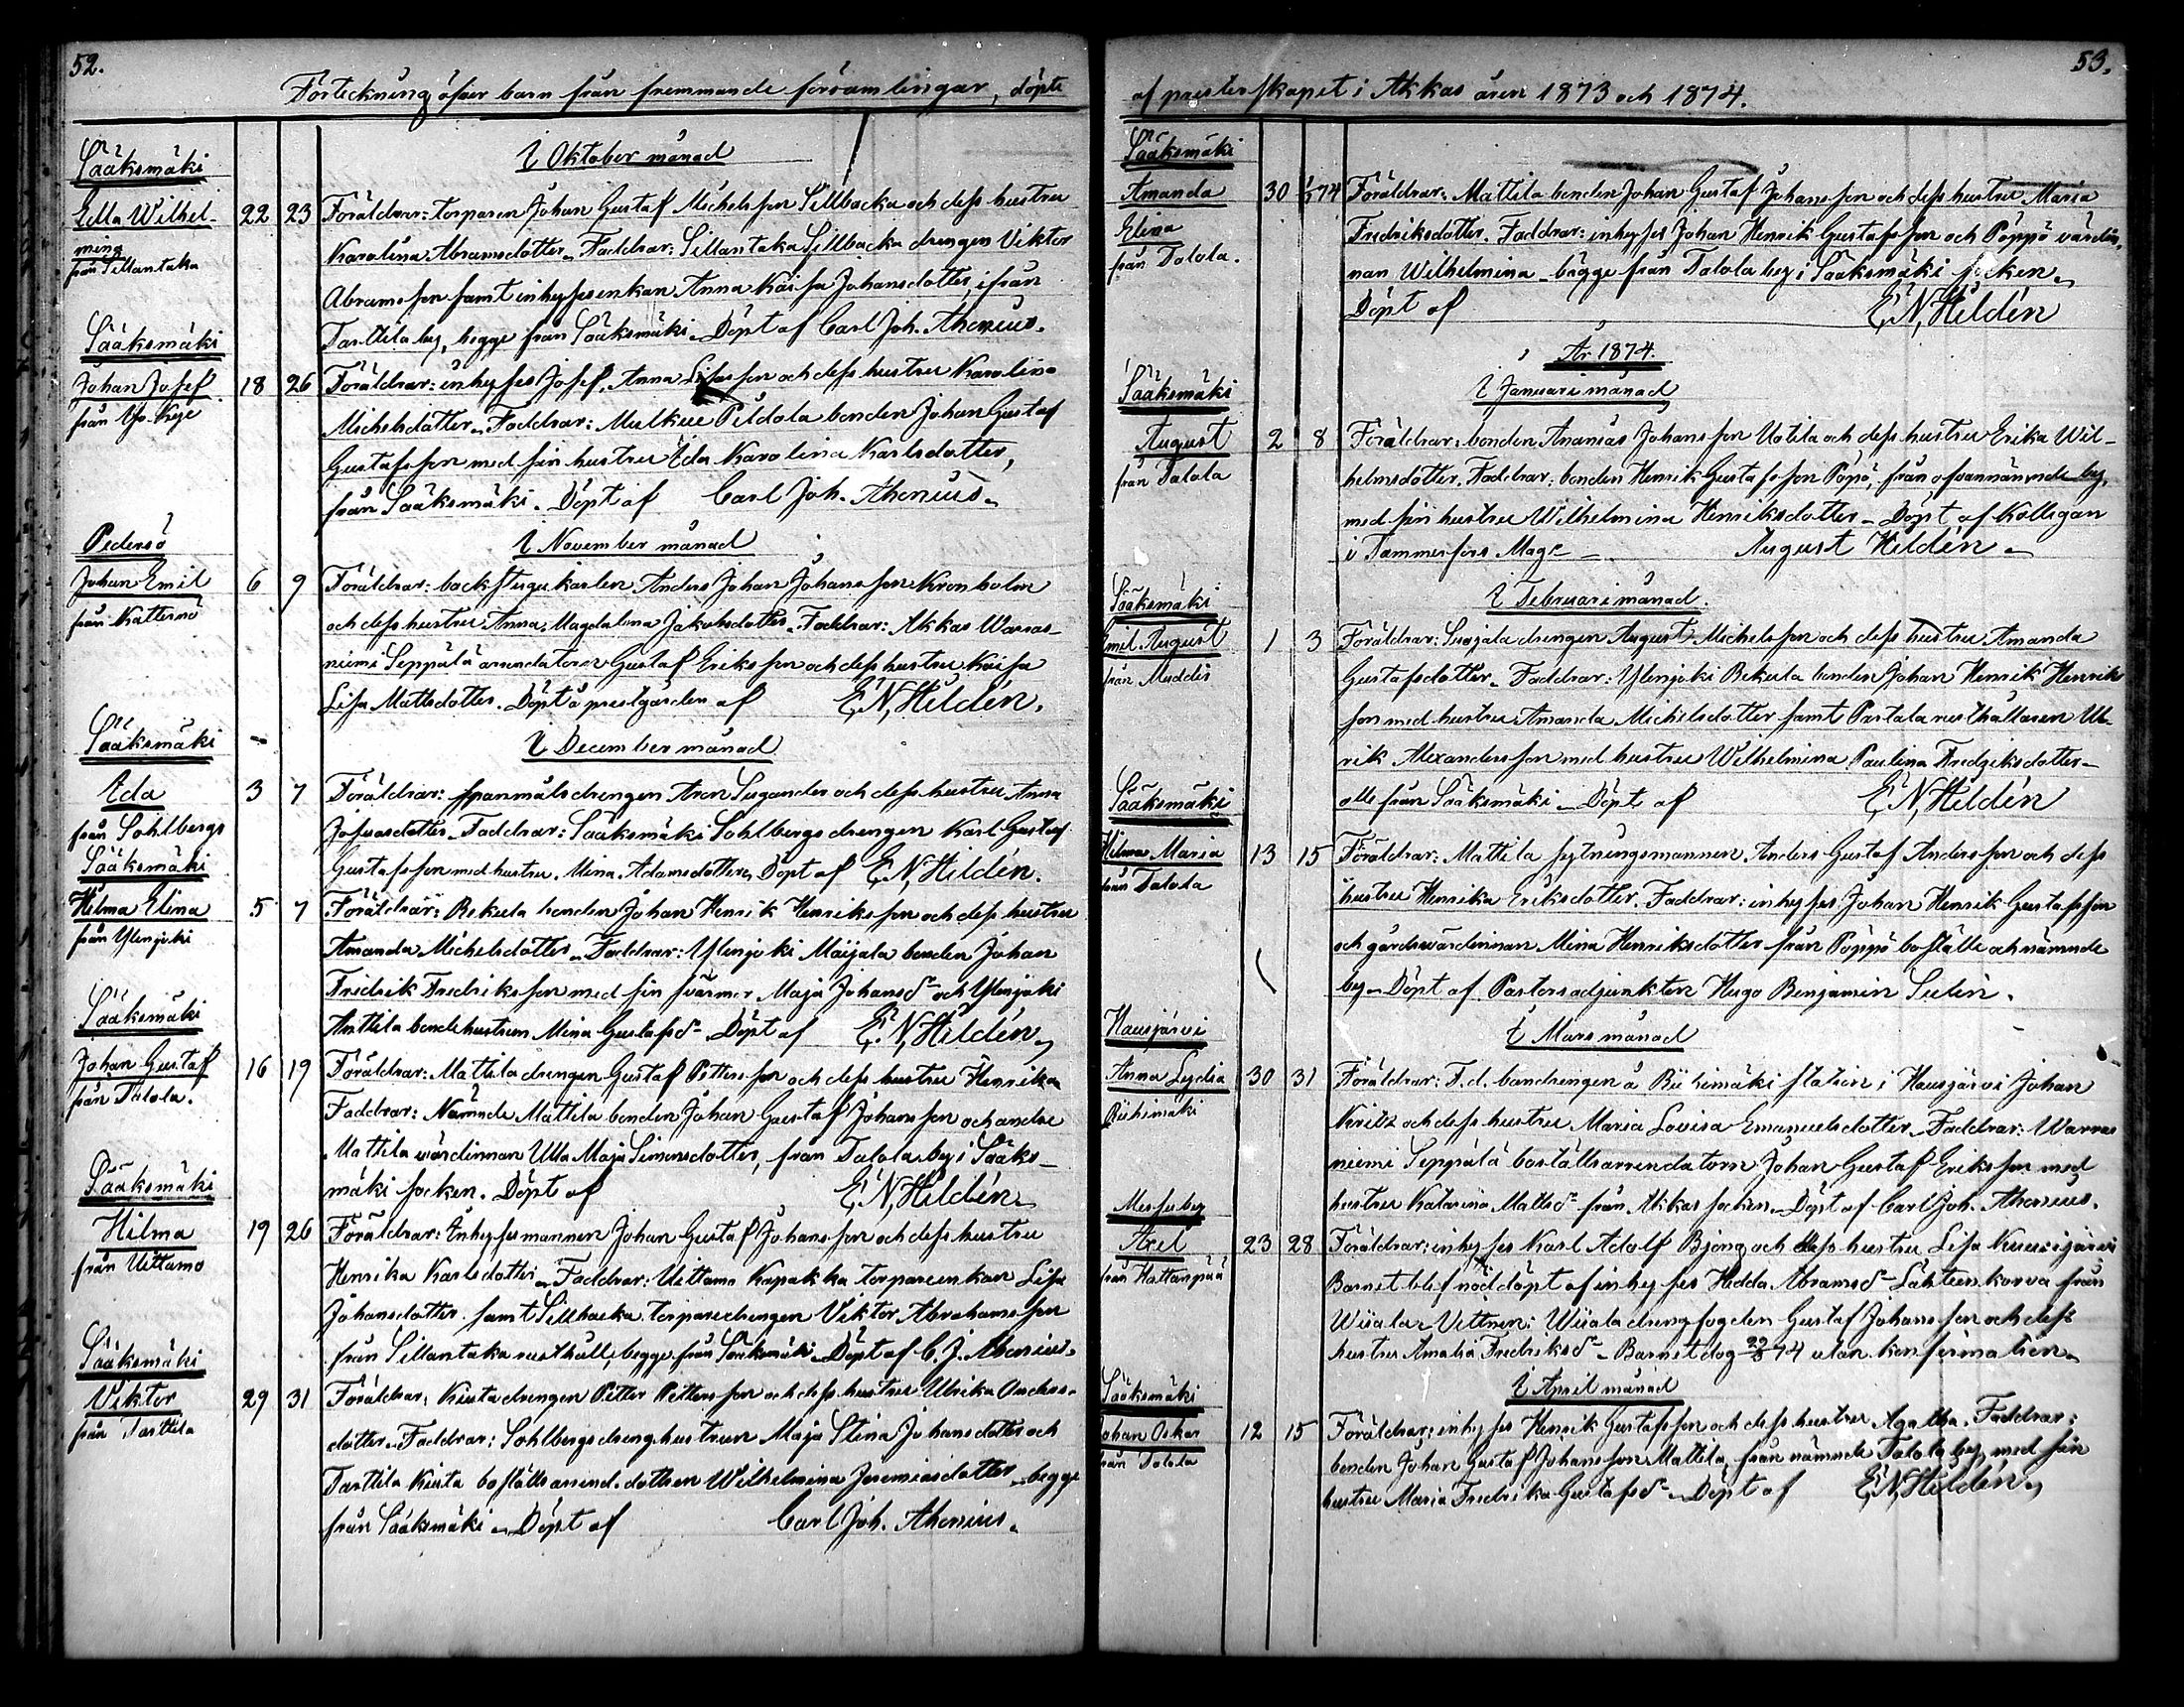 52.
Förteckning öfver barn från fremmande församlingar, döpte
I Oktober månad
Sääksmäki
Edla Wilhel-
mina
från Sillantaka
22 23 Föräldrar: torparen Johan Gustaf Michelsson Sillbacka och dess hustru
Karolina Abramsdotter. Faddrar: Sillantaka Sillbacka drengen Viktor
Abramsson samt inhysesenkan Anna Kaisa Johansdotter, ifrån
Tarttila by, begge från Sääksmäki. Döpt af Carl Joh. Athenius.
Sääksmäki
Johan Josef
från
18 26 Föräldrar: inhyses Josef Anna Lisasson och dess hustru Karolina
Michelsdotter. Faddrar: Mulkue Pildola bonden Johan Gustaf
Gustafsson med sin hustru Eda Karolina Karlsdotter,
från Sääksmäki. Döpt af Carl Joh. Athenius.
I November månad
Pedersö
Johan Emil
från Katternö
6 9 Föräldrar: backstugukarlen Anders Johan Johansson Kronholm
och dess hustru Anna Magdalena Jakobsdotter. Faddrar: Akkas Warras-
niemi Seppälä arrendatorn Gustaf Eriksson och dess hustru Kaisa
Lisa Mattsdotter. Döpt å prestgården af E. N. Hildén.
I December månad
Sääksmäki
Eda
från Sohlbergs
3 7 Föräldrar: spanmålsdrengen Aron Segander och dess hustru Anna
Josuasdotter. Faddrar: Sääksmäki Sohlbergs drengen Karl Gustaf
Gustafsson med hustru Mina Adamsdotter. Döpt af E. N. Hildén.
Sääksmäki
Hilma Elina
från Ylenjoki
5 7 Föräldrar: Bekula bonden Johan Henrik Henriksson och dess hustru
Amanda Michelsdotter. Faddrar: Ylenjoki Maijala bonden Johan
Fredrik Fredriksson med sin svärmor Maja Johansdr och Ylenjoki
Anttila bondehustrun Mina Gustafsdr. Döpt af E. N. Hildén.
Sääksmäki
Johan Gustaf
från Talola.
16 19 Föräldrar: Mattila drengen Gustaf Pettersson och dess hustru Henrika
Faddrar: Nämnde Mattila bonden Johan Gustaf Johansson och andre
Mattila värdinnan Ulla Maja Simonsdotter, från Talola by i Sääks-
mäki socken. Döpt af E. N. Hildén.
Sääksmäki
Hilma
från Uittamo
19 26 Föräldrar: Inhysesmannen Johan Gustaf Johansson och dess hustru
Henrika Karlsdotter. Faddrar: Uittamo Kapakka torpareenkan Lisa
Johansdotter samt Sillbacka torparedrengen Viktor Abrahamsson
från Sillantaka rusthåll, begge från Sääksmäki. Döpt af C. J. Athenius.
Sääksmäki
Viktor
från Tarttila
29 31 Föräldrar: Kiusta drengen Petter Pettersson och dess hustru Ulrika Anders-
dotter. Faddrar: Sohlbergs drenghustrun Maja Stina Johansdotter och
Tarttila Kiusta boställsarrend. dottren Wilhelmina Jeremiasdotter, begge
från Sääksmäki. Döpt af Carl Joh. Athenius.
53.
af presterskapet i Akkas åren 1873 och 1874.
Sääksmäki
Amanda
Elina
från Talola.
30 1/1 74 Föräldrar: Mattila bonden Johan Gustaf Johansson och dess hustru Maria
Fredriksdotter. Faddrar: inhyses Johan Henrik Gustafsson och Pöppö värdin-
nan Wilhelmina, bägge från Talola by i Sääksmäki socken.
Döpt af E. N. Hildén
År 1874.
I Januari månad
Sääksmäki
August
från Talola
2 8 Föräldrar: bonden Ananias Johansson Uotila och dess hustru Erika Wil-
helmsdotter. Faddrar: bonden Henrik Gustafsson Pöpö, från ofvannämnde by,
med sin hustru Wilhelmina Henriksdotter. Döpt af Kollegan
i Tammerfors Mag. August Hildén.
I Februari månad.
Sääksmäki
Emil August
från Muddis
1 3 Föräldrar: drengen August Michelsson och dess hustru Amanda
Gustafsdotter. Faddrar: Ylenjoki Bekula bonden Johan Henrik Henrik-
sson med hustru Amanda Michelsdotter samt Partala rusthållaren Ul-
rik Alexandersson med hustru Wilhelmina Paulina Fredriksdotter
alle från Sääksmäki. Döpt af E. N. Hildén
Sääksmäki
Hilma Maria
från Talola
13 15 Föräldrar: Mattila sytningsmannen Anders Gustaf Andersson och dess
hustru Henrika Eriksdotter. Faddrar: inhyses Johan Henrik Gustafsson
och gårdsvärdinnan Mina Henriksdotter från Pöppö boställe och nämnde
by. Döpt af Pastorsadjunkten Hugo Benjamin Sulin.
I Mars månad
Hausjärvi
Anna Lydia
Riihimäki
30 31 Föräldrar: F.d. bandrengen å Riihimäki station i Hausjärvi Johan
och dess hustru Maria Lovisa Emanuelsdotter. Faddrar: Warras-
niemi Seppälä boställsarrendatorn Johan Gustaf Eriksson med
hustru Katarina Mattsdr från Akkas socken. Döpt af Carl Joh. Athenius.
Messuby
Axel
från Hattanpää
23 28 Föräldrar: inhyses Karl Adolf Björg och dess hustru Lisa Kuusijärvi
Barnet blef nöddöpt af inhyses Hedda Abramsdr Lähteenkorva från
Wiiala. Vittnen: Wiiala drengfogden Gustaf Johansson och dess
hustru Amalia Fredriksdr. Barnet dog 22/8 74 utan konfirmation.
I April månad
Sääksmäki
Johan Oskar
från Talola
12 15 Föräldrar: inhyses Henrik Gustafsson och dess hustru Agatha. Faddrar:
bonden Johan Gustaf Johansson Mattila, från nämnde Talola by, med sin
hustru Maria Fredrika Gustafsdr. Döpt af E. N. Hildén.